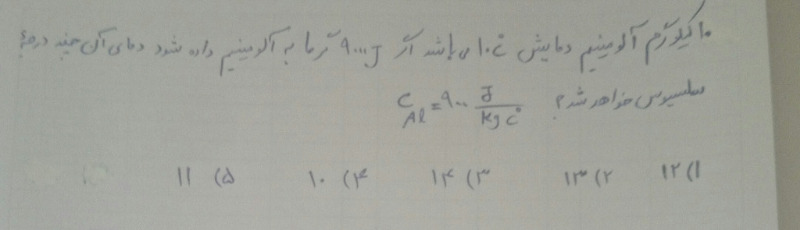 ۱۰ کیلوگرم آلومینیم دمایش ۱۰ c° می باشد اگر ۹۰۰۰ J گرما به آلومینیم داده شود دمای آن چند درجهٔ
سلسیوس خواهد شد؟ C Al = ۹۰۰ J / kg c°
۱) ۱۲ ۲) ۱۳ ۳) ۱۴ ۴) ۱۰ ۵) ۱۱